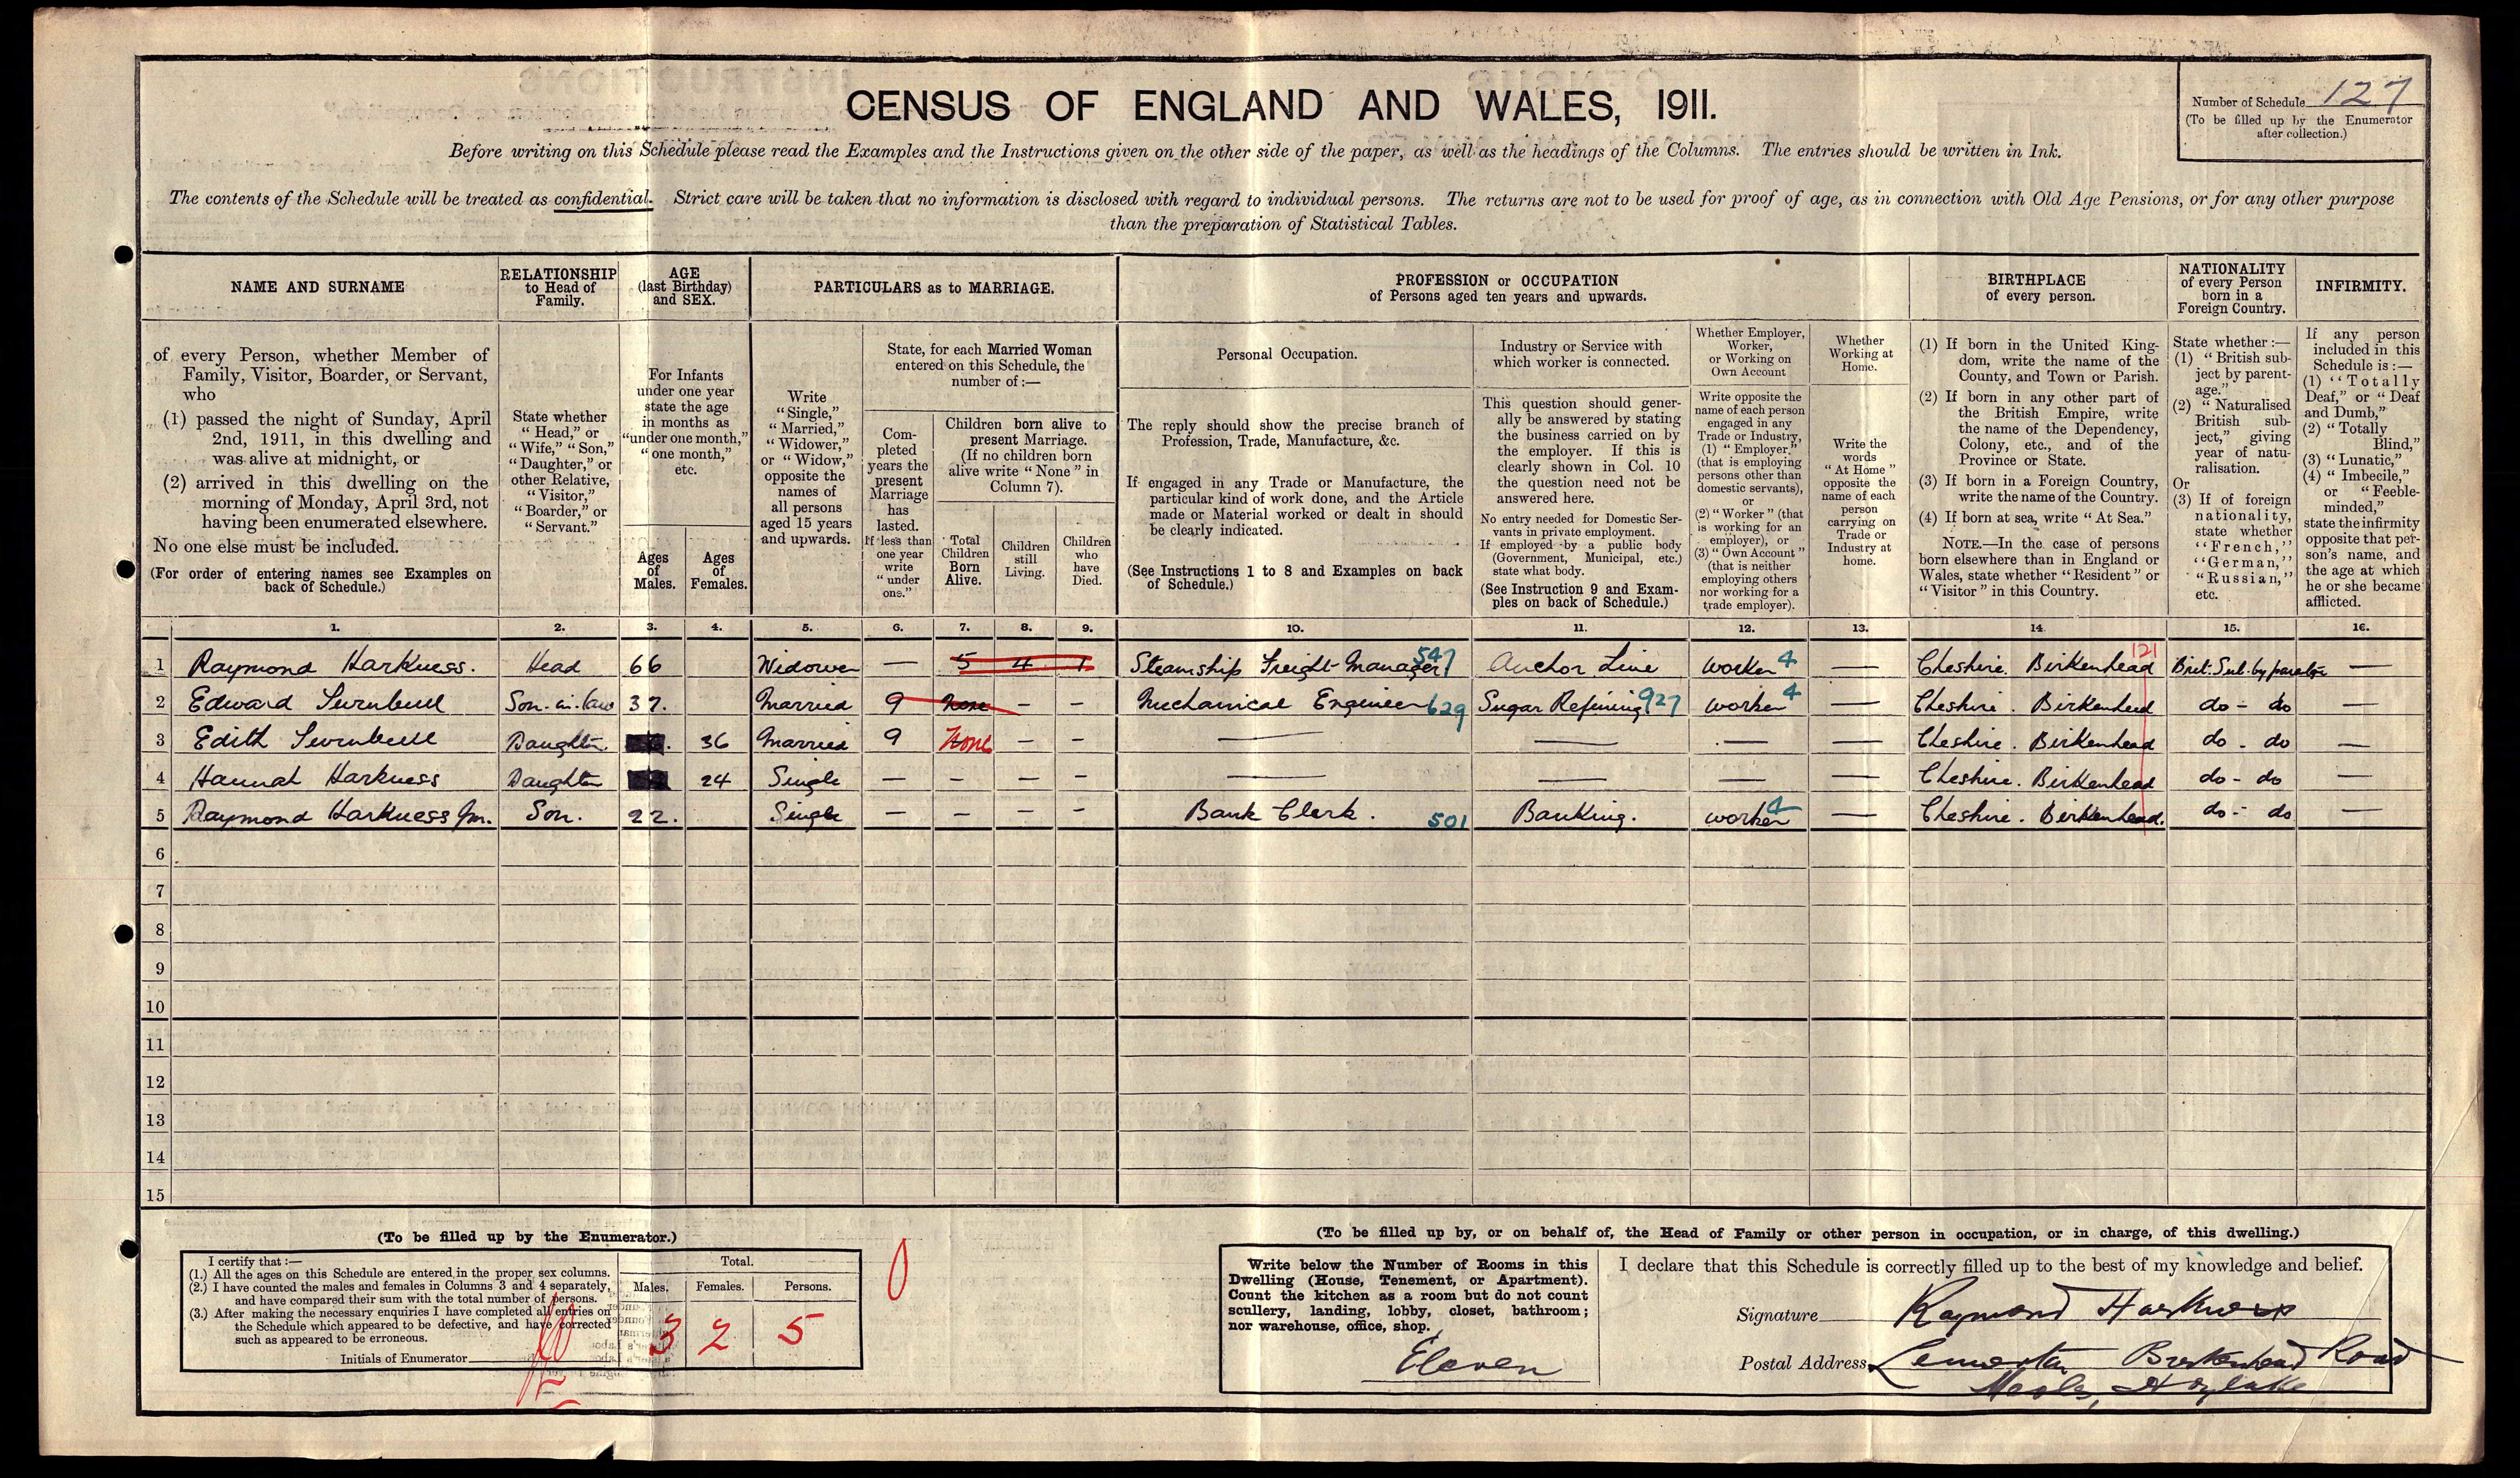 Number of Schedule 127
(To be filled up by the Enumerator
after collection.)
CENSUS OF ENGLAND AND WALES, 1911.
Before writing on this Schedule please read the Examples and the Instructions given on the other side of the paper, as well as the headings of the Columns. The entries should be written in Ink.
The contents of the Schedule will be treated as confidential. Strict care will be taken that no information is disclosed with regard to individual persons. The returns are not to be used for proof of age, as in connection with Old Age Pensions, or for any other purpose
than the preparation of Statistical Tables.
NAME AND SURNAME
of every Person, whether Member of
Family, Visitor, Boarder, or Servant,
who
(1) passed the night of Sunday, April
2nd, 1911, in this dwelling and
was alive at midnight, or
(2) arrived in this dwelling on the
morning of Monday, April 3rd, not
having been enumerated elsewhere.
No one else must be included.
(For order of entering names see Examples on
back of Schedule.)
RELATIONSHIP
to Head of
Family.
State whether
"Head," or
"Wife," "Son,"
"Daughter," or
other Relative,
"Visitor,"
"Boarder," or
"Servant."
AGE
(last Birthday)
and SEX.
For Infants
under one year
state the age
in months as
"under one month,"
"one month,"
etc.
Ages
of
Males.
Ages
of
Females.
PARTICULARS as to MARRIAGE.
Write
"Single,"
"Married,"
"Widower,"
or "Widow,"
opposite the
names of
all persons
aged 15 years
and upwards.
State, for each Married Woman
entered on this Schedule, the
number of :—
Com-
pleted
years the
present
Marriage
has
lasted.
If less than
one year
write
"under
one."
Children born alive to
present Marriage.
(If no children born
alive write "None" in
Column 7).
Total
Children
Born
Alive.
Children
still
Living.
Children
who
have
Died.
PROFESSION or OCCUPATION
of Persons aged ten years and upwards.
Personal Occupation.
The reply should show the precise branch of
Profession, Trade, Manufacture, &c.
If engaged in any Trade or Manufacture, the
particular kind of work done, and the Article
made or Material worked or dealt in should
be clearly indicated.
(See Instructions 1 to 8 and Examples on back
of Schedule.)
Industry or Service with
which worker is connected.
This question should gener-
ally be answered by stating
the business carried on by
the employer. If this is
clearly shown in Col. 10
the question need not be
answered here.
No entry needed for Domestic Ser-
vants in private employment.
If employed by a public body
(Government, Municipal, etc.)
state what body.
(See Instruction 9 and Exam-
ples on back of Schedule.)
Whether Employer,
Worker,
or Working on
Own Account
Write opposite the
name of each person
engaged in any
Trade or Industry,
(1) "Employer,"
(that is employing
persons other than
domestic servants),
or
(2) "Worker" (that
is working for an
employer), or
(3) "Own Account"
(that is neither
employing others
nor working for a
trade employer).
Whether
Working at
Home.
Write the
words
"At Home"
opposite the
name of each
person
carrying on
Trade or
Industry at
home.
BIRTHPLACE
of every person.
(1) If born in the United King-
dom, write the name of the
County, and Town or Parish.
(2) If born in any other part of
the British Empire, write
the name of the Dependency,
Colony, etc., and of the
Province or State.
(3) If born in a Foreign Country,
write the name of the Country.
(4) If born at sea, write "At Sea."
NOTE.—In the case of persons
born elsewhere than in England or
Wales, state whether "Resident" or
"Visitor" in this Country.
NATIONALITY
of every Person
born in a
Foreign Country.
State whether :—
(1) "British sub-
ject by parent-
age."
(2) "Naturalised
British sub-
ject," giving
year of natu-
ralisation.
Or
(3) If of foreign
nationality,
state whether
"French,"
"German,"
"Russian,"
etc.
INFIRMITY.
If any person
included in this
Schedule is :—
(1) "Totally
Deaf," or "Deaf
and Dumb,"
(2) "Totally
Blind,"
(3) "Lunatic,"
(4) "Imbecile,"
or "Feeble-
minded,"
state the infirmity
opposite that per-
son's name, and
the age at which
he or she became
afflicted.
1. 2. 3. 4. 5. 6. 7. 8. 9. 10. 11. 12. 13. 14. 15. 16.
1 Raymond Harkness. Head 66 Widower — 5 4 1 Steamship Freight Manager 547 Anchor Line Worker 4 — Cheshire. Birkenhead 121 Brit. Sub. by parentage —
2 Edward Turnbull Son-in-law 37. Married 9 None – – Mechanical Engineer 629 Sugar Refining 927 worker 4 — Cheshire. Birkenhead do - do —
3 Edith Turnbull Daughter 36 Married 9 None – – — — — — Cheshire. Birkenhead do - do —
4 Hannah Harkness Daughter 24 Single – – – – — — — — Cheshire. Birkenhead do - do —
5 Raymond Harkness Jnr. Son. 22. Single – – – – Bank Clerk. 501 Banking. worker 4 — Cheshire. Birkenhead. do - do —
6
7
8
9
10
11
12
13
14
15
(To be filled up by the Enumerator.)
I certify that :—
(1.) All the ages on this Schedule are entered in the proper sex columns.
(2.) I have counted the males and females in Columns 3 and 4 separately,
and have compared their sum with the total number of persons.
(3.) After making the necessary enquiries I have completed all entries on
the Schedule which appeared to be defective, and have corrected
such as appeared to be erroneous.
Initials of Enumerator
Total.
Males. Females. Persons.
3 2 5
0
(To be filled up by, or on behalf of, the Head of Family or other person in occupation, or in charge, of this dwelling.)
Write below the Number of Rooms in this
Dwelling (House, Tenement, or Apartment).
Count the kitchen as a room but do not count
scullery, landing, lobby, closet, bathroom;
nor warehouse, office, shop.
Eleven
I declare that this Schedule is correctly filled up to the best of my knowledge and belief.
Signature Raymond Harkness
Postal Address Birkenhead Road
Meols, Hoylake